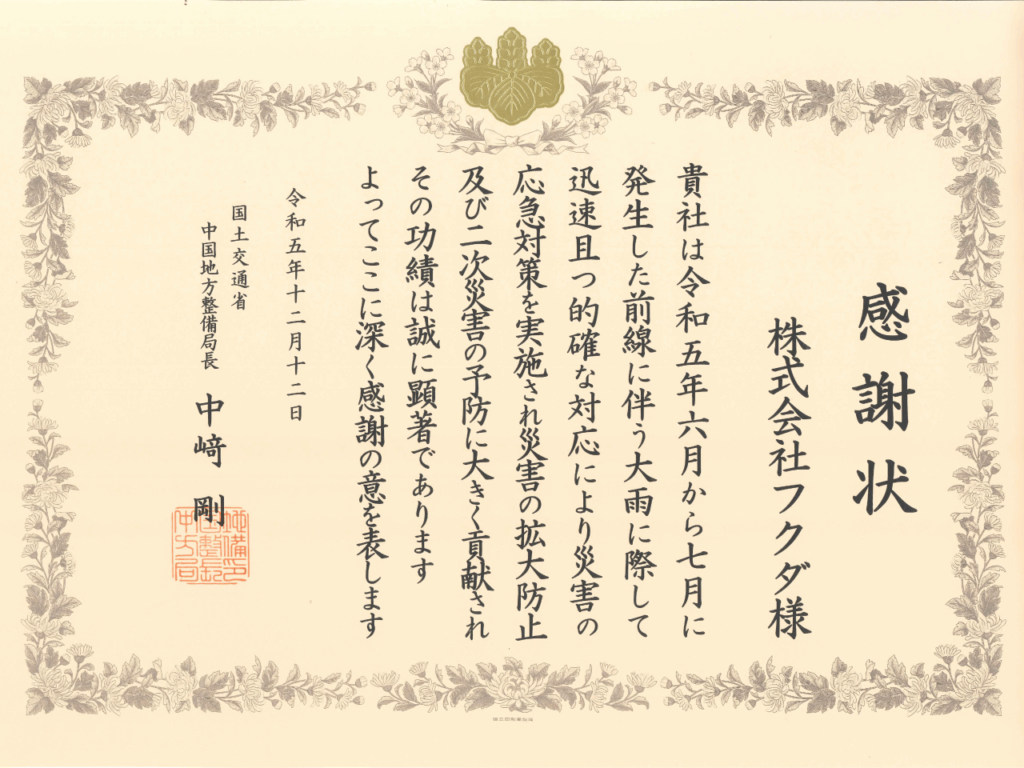 感謝状
株式会社フクダ様
貴社は令和五年六月から七月に
発生した前線に伴う大雨に際して
迅速且つ的確な対応により災害の
応急対策を実施され災害の拡大防止
及び二次災害の予防に大きく貢献され
その功績は誠に顕著であります
よってここに深く感謝の意を表します
令和五年十二月十二日
国土交通省
中国地方整備局長
中﨑 剛